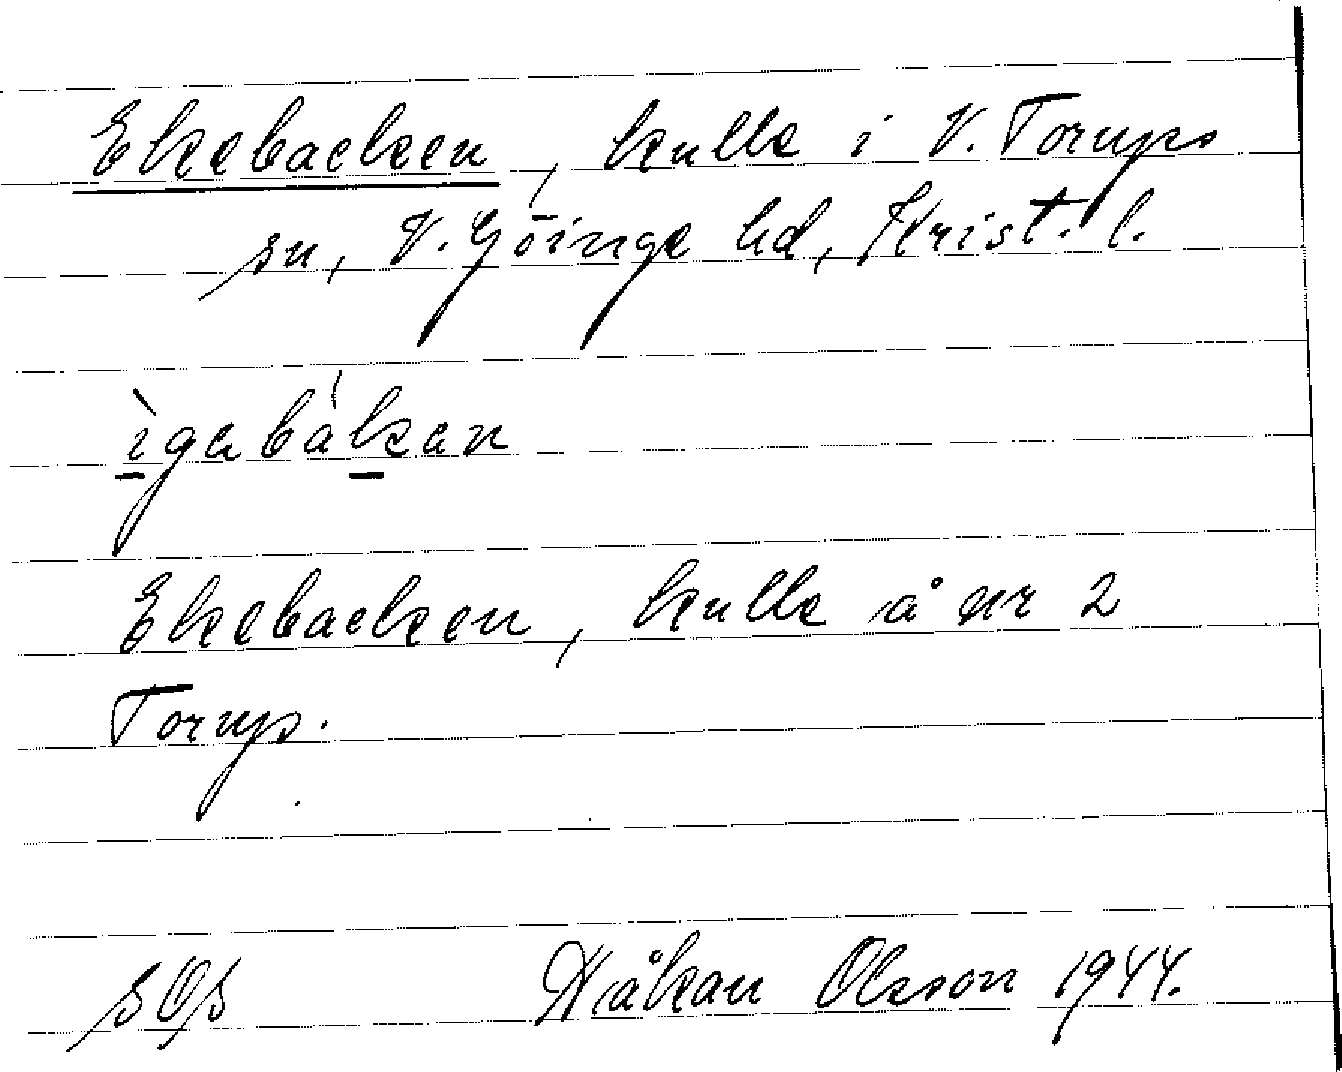 Ekebacken, kulle i V. Torups
sn, V. Göinge hd, Krist. l.
ìgabákan
Ekebacken, kulle å nr 2
Torup.
SOS Håkan Olsson 1944.